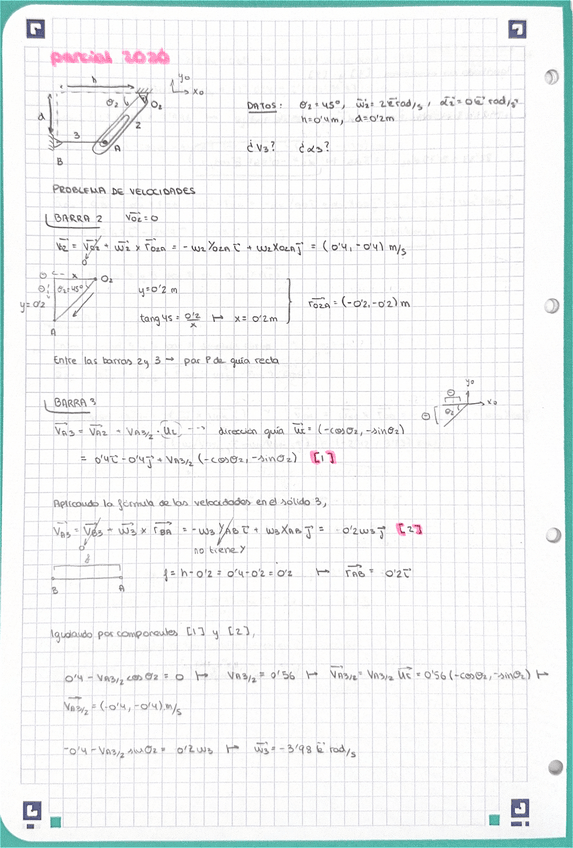 parcial 2020
h
y₀
x₀
θ₂
O₂
d
2
3
A
B
DATOS: θ₂=45°, w₂=2k rad/s, α₂=0k rad/s²
h=0'4m, d=0'2m
¿v₃? ¿α₃?
PROBLEMA DE VELOCIDADES
BARRA 2 V_O2=0
= V_O2 + w₂ x r_O2A = -w₂ Y_O2A i + w₂ X_O2A j = (0'4, -0'4) m/s
0
⊖ x O₂
⊖ θ₂=45°
y=0'2
A
y=0'2 m
tang45 = 0'2/x ↦ x=0'2m
r_O2A = (-0'2,-0'2) m
Entre las barras 2 y 3 → par P de guía recta
BARRA 3
y₀
x₀
⊖
⊖
θ₂
V_A3 = V_A2 + V_A3/2 · u_t ---> dirección guía u_t = (-cosθ₂, -sinθ₂)
= 0'4i - 0'4j + V_A3/2 (-cosθ₂, -sinθ₂) [1]
Aplicando la fórmula de las velocidades en el sólido 3,
V_A3 = V_B3 + w₃ x r_BA = -w₃ Y_AB i + w₃ X_AB j = 0'2w₃ j [2]
0
no tiene Y
f
B A
f = h - 0'2 = 0'4 - 0'2 = 0'2 ↦ r_AB = 0'2i
Igualando por componentes [1] y [2],
0'4 - V_A3/2 cosθ₂ = 0 ↦ V_A3/2 = 0'56 ↦ V_A3/2 = V_A3/2 u_t = 0'56 (-cosθ₂, -sinθ₂) ↦
V_A3/2 = (-0'4, -0'4) m/s
-0'4 - V_A3/2 sinθ₂ = 0'2 w₃ ↦ w₃ = -3'98 k rad/s